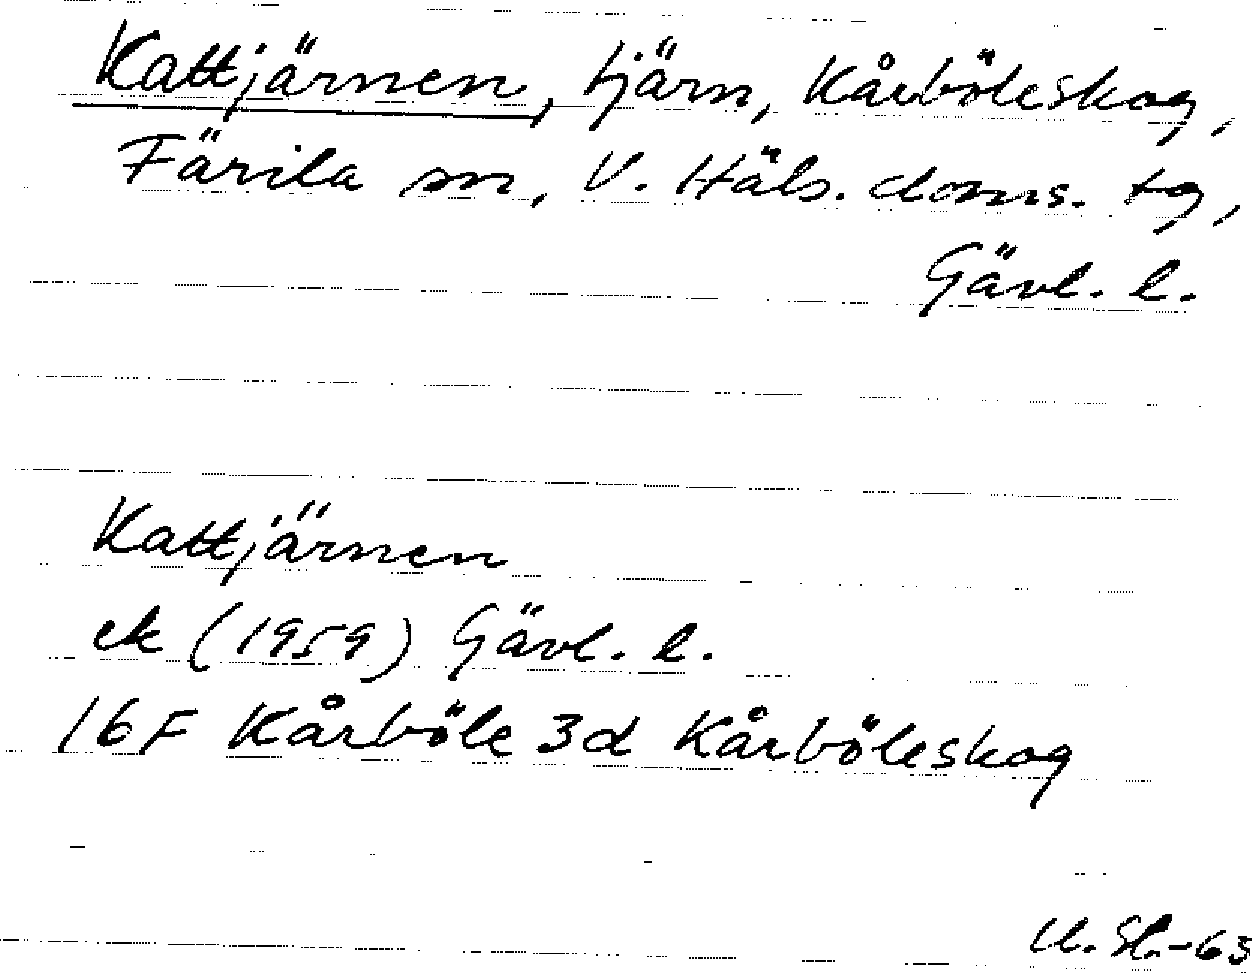 Kattjärnen, tjärn, Kårböleskog,
Färila sn, V. Häls. doms. tg,
Gävl. l.
Kattjärnen
ek (1959) Gävl. l.
16 F Kårböle 3d Kårböleskog
-63